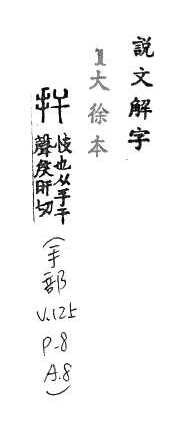 說文解字
1大徐本
扞
忮也从手干
聲矦旰切
(手部 V.125 P-8 A.8)